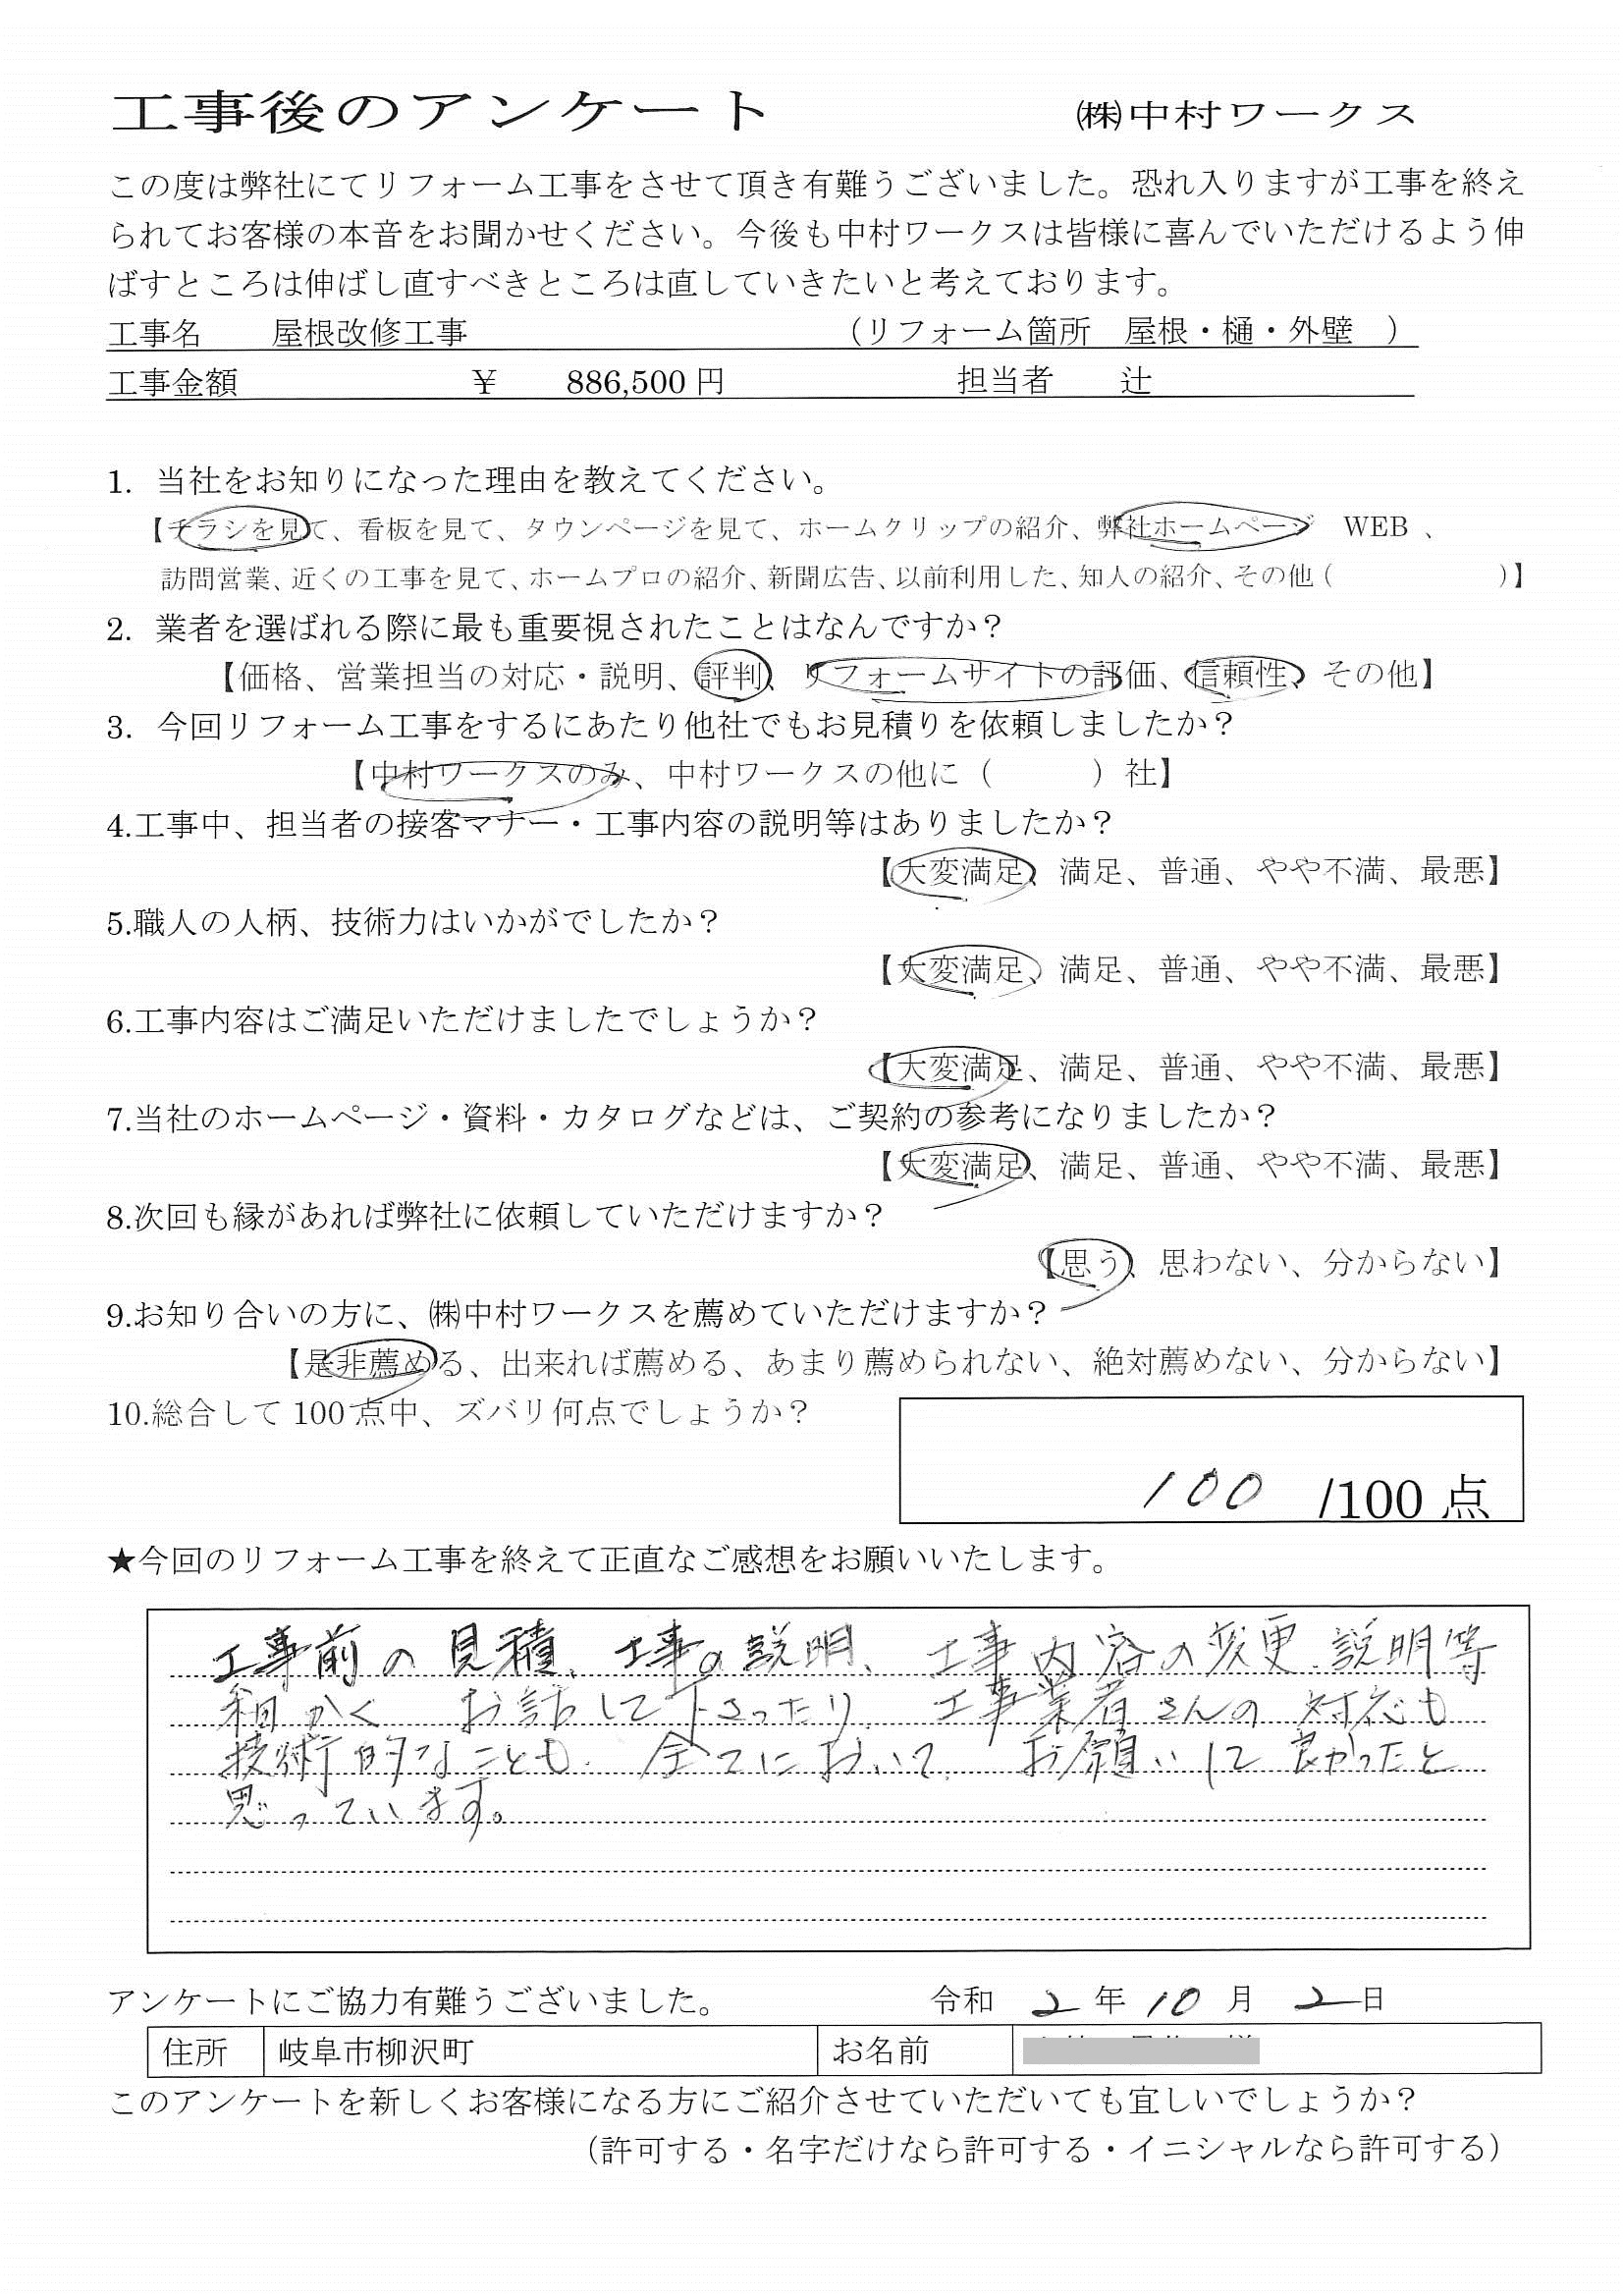 工事後のアンケート　㈱中村ワークス
この度は弊社にてリフォーム工事をさせて頂き有難うございました。恐れ入りますが工事を終え
られてお客様の本音をお聞かせください。今後も中村ワークスは皆様に喜んでいただけるよう伸
ばすところは伸ばし直すべきところは直していきたいと考えております。
工事名　屋根改修工事　（リフォーム箇所　屋根・樋・外壁　）
工事金額　￥　886,500 円　担当者　辻
1. 当社をお知りになった理由を教えてください。
【チラシを見て、看板を見て、タウンページを見て、ホームクリップの紹介、弊社ホームページ　WEB 、
訪問営業、近くの工事を見て、ホームプロの紹介、新聞広告、以前利用した、知人の紹介、その他（　　　　　）】
2. 業者を選ばれる際に最も重要視されたことはなんですか？
【価格、営業担当の対応・説明、評判、リフォームサイトの評価、信頼性、その他】
3. 今回リフォーム工事をするにあたり他社でもお見積りを依頼しましたか？
【中村ワークスのみ、中村ワークスの他に（　　　）社】
4.工事中、担当者の接客マナー・工事内容の説明等はありましたか？
【大変満足、満足、普通、やや不満、最悪】
5.職人の人柄、技術力はいかがでしたか？
【大変満足、満足、普通、やや不満、最悪】
6.工事内容はご満足いただけましたでしょうか？
【大変満足、満足、普通、やや不満、最悪】
7.当社のホームページ・資料・カタログなどは、ご契約の参考になりましたか？
【大変満足、満足、普通、やや不満、最悪】
8.次回も縁があれば弊社に依頼していただけますか？
【思う、思わない、分からない】
9.お知り合いの方に、㈱中村ワークスを薦めていただけますか？
【是非薦める、出来れば薦める、あまり薦められない、絶対薦めない、分からない】
10.総合して 100 点中、ズバリ何点でしょうか？
100 /100 点
★今回のリフォーム工事を終えて正直なご感想をお願いいたします。
工事前の見積、工事の説明、工事内容の変更、説明等
細かく お話して下さったり、工事業者さんの対応も
技術的なことも、全てにおいて、お願いして良かったと
思っています。
アンケートにご協力有難うございました。　令和 2 年 10 月 2 日
住所　岐阜市柳沢町　お名前
このアンケートを新しくお客様になる方にご紹介させていただいても宜しいでしょうか？
（許可する・名字だけなら許可する・イニシャルなら許可する）